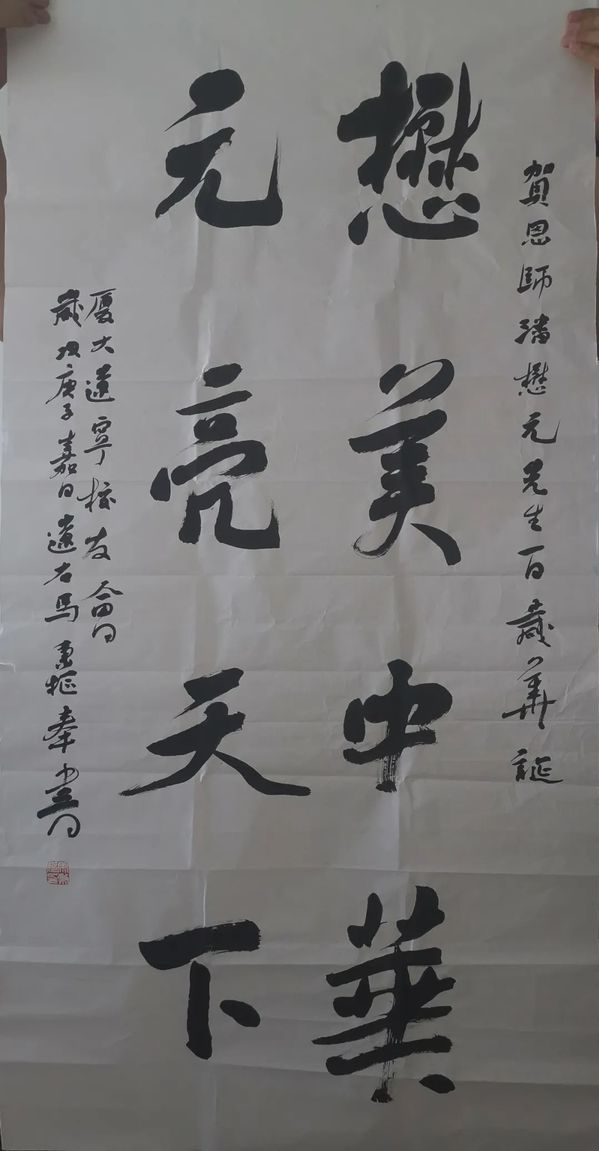 賀恩師潘懋元先生百歲華誕
懋美中華
元亮天下
厦大遼寧校友會
歲次庚子嘉日遼右馬東樞奉書